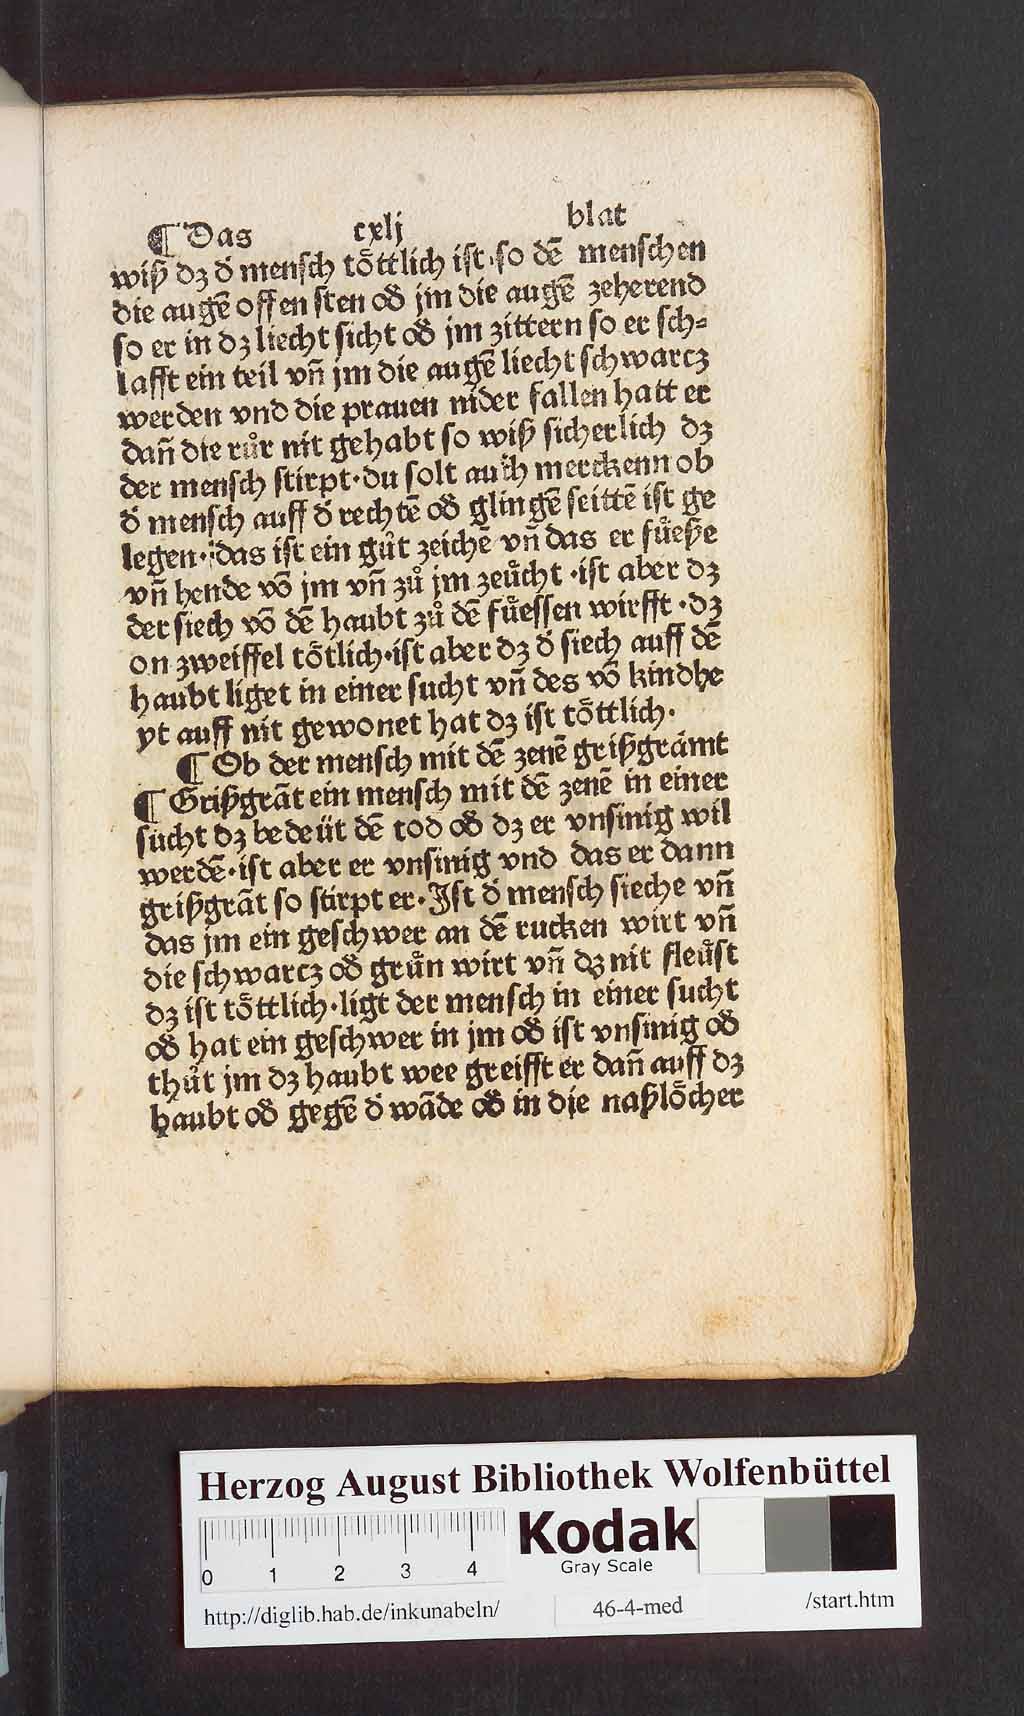 ¶ Das cxlj blat
wiß dz d̕ mensch toͤttlich ist·so dē menschen
die augē offen sten od̕ jm die augē zeherend
so er in dz liecht sicht od̕ jm zittern so er sch⸗
lafft ein teil vn̄ jm die augē liecht schwarcz
werden vnd die prauen nider fallen hatt er
dan̄ die ruͦr nit gehabt so wiß sicherlich dz
der mensch stirpt·du solt auch merckenn ob
d̕ mensch auff d̕ rechtē od̕ glingē seittē ist ge
legen·das ist ein guͦt zeichē vn̄ das er fuͤeße
vn̄ hende vō jm vn̄ zuͦ jm zeuͤcht·ist aber dz
der siech vō dē haubt zuͦ dē fuͤessen wirfft·dz
on zweiffel toͤtlich·ist aber dz d̕ siech auff dē
haubt liget in einer sucht vn̄ des vō kindhe
yt auff nit gewonet hat dz ist toͤttlich·
¶ Ob der mensch mit dē zenē grißgrämt
¶ Grißgrāt ein mensch mit dē zenē in einer
sücht dz bedeüt dē tod od̕ dz er vnsinig wil
werdē·ist aber er vnsinig vnd das er dann
grißgrāt so stirpt er·Ist d̕ mensch sieche vn̄
das jm ein geschwer an dē rucken wirt vn̄
die schwarcz od̕ gruͤn wirt vn̄ dz nit fleuͤst
dz ist toͤttlich·ligt der mensch in einer sucht
od̕ hat ein geschwer in jm od̕ ist vnsinig od̕
thuͦt jm dz haubt wee greifft er dan̄ auff dz
haubt od̕ gegē d̕ wāde od̕ in die naßloͤcher
Herzog August Bibliothek Wolfenbüttel
0 1 2 3 4
Kodak
Gray Scale
http://diglib.hab.de/inkunabeln/ 46-4-med /start.htm